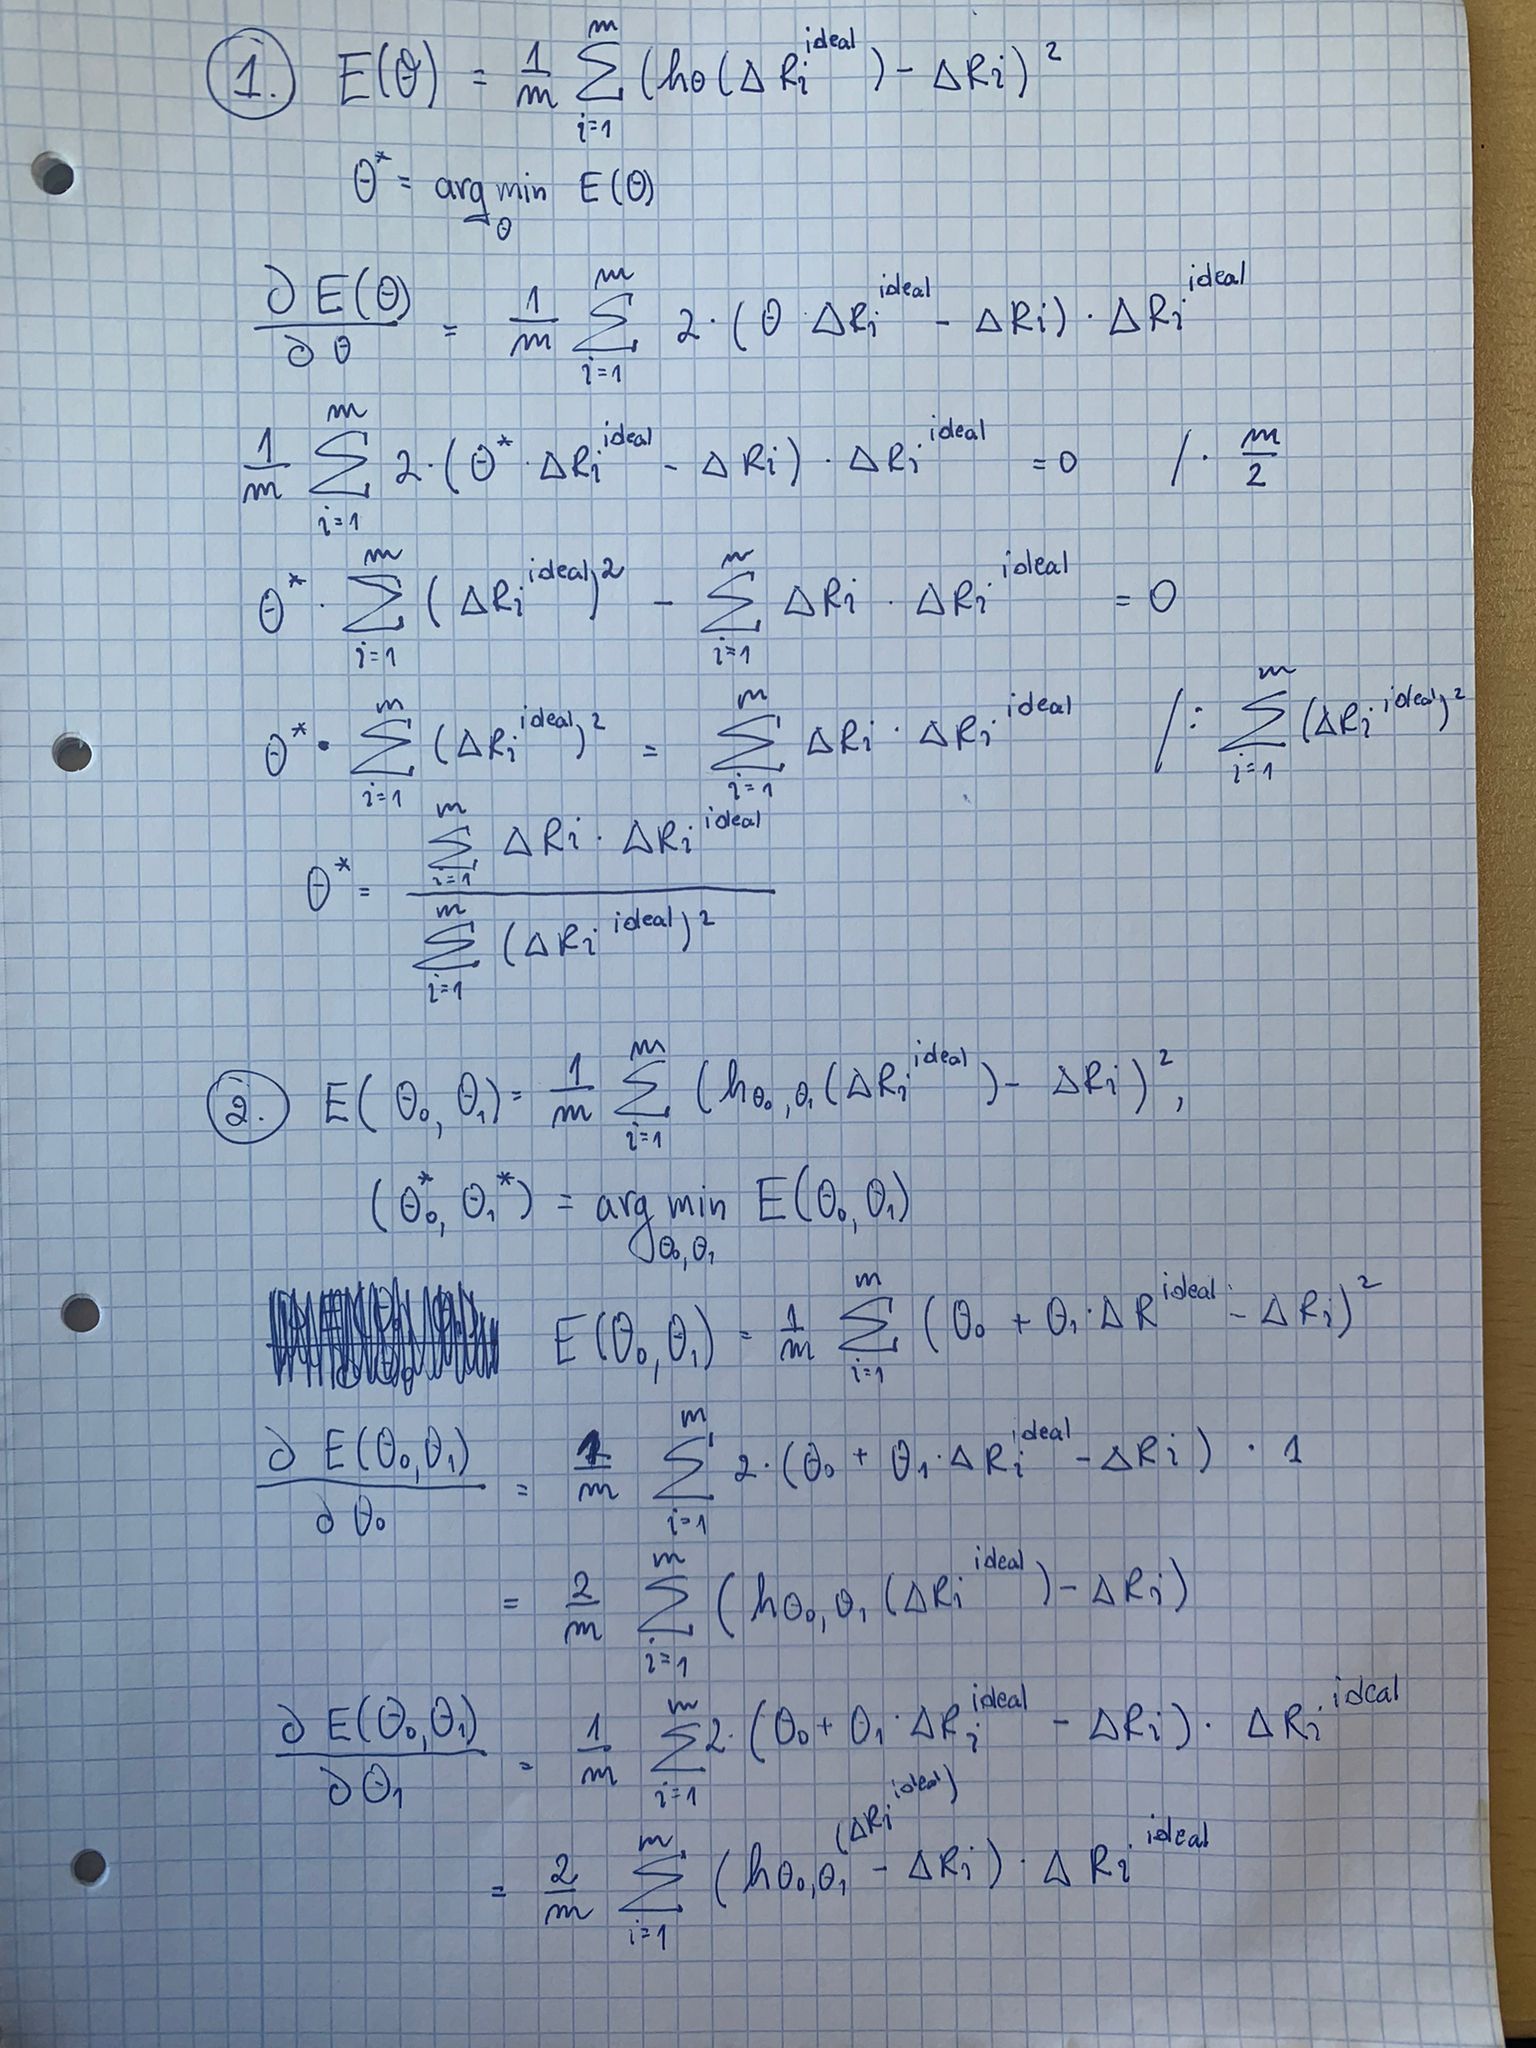 1. E(θ) = 1/m ∑_{i=1}^{m} (hθ(ΔRi^{ideal}) - ΔRi)²
θ* = arg min_θ E(θ)
∂E(θ)/∂θ = 1/m ∑_{i=1}^{m} 2·(θ·ΔRi^{ideal} - ΔRi)·ΔRi^{ideal}
1/m ∑_{i=1}^{m} 2·(θ*·ΔRi^{ideal} - ΔRi)·ΔRi^{ideal} = 0 /· m/2
θ*·∑_{i=1}^{m} (ΔRi^{ideal})² - ∑_{i=1}^{m} ΔRi·ΔRi^{ideal} = 0
θ*·∑_{i=1}^{m} (ΔRi^{ideal})² = ∑_{i=1}^{m} ΔRi·ΔRi^{ideal} /: ∑_{i=1}^{m} (ΔRi^{ideal})²
θ* = ∑_{i=1}^{m} ΔRi·ΔRi^{ideal} / ∑_{i=1}^{m} (ΔRi^{ideal})²
2. E(θ₀, θ₁) = 1/m ∑_{i=1}^{m} (h_{θ₀,θ₁}(ΔRi^{ideal}) - ΔRi)²,
(θ₀*, θ₁*) = arg min_{θ₀,θ₁} E(θ₀, θ₁)
E(θ₀, θ₁) = 1/m ∑_{i=1}^{m} (θ₀ + θ₁·ΔR^{ideal} - ΔRi)²
∂E(θ₀,θ₁)/∂θ₀ = 1/m ∑_{i=1}^{m} 2·(θ₀ + θ₁·ΔRi^{ideal} - ΔRi)·1
= 2/m ∑_{i=1}^{m} (hθ₀,θ₁(ΔRi^{ideal}) - ΔRi)
∂E(θ₀,θ₁)/∂θ₁ = 1/m ∑_{i=1}^{m} 2·(θ₀ + θ₁·ΔRi^{ideal} - ΔRi)·ΔRi^{ideal}
= 2/m ∑_{i=1}^{m} (hθ₀,θ₁(ΔRi^{ideal}) - ΔRi)·ΔRi^{ideal}